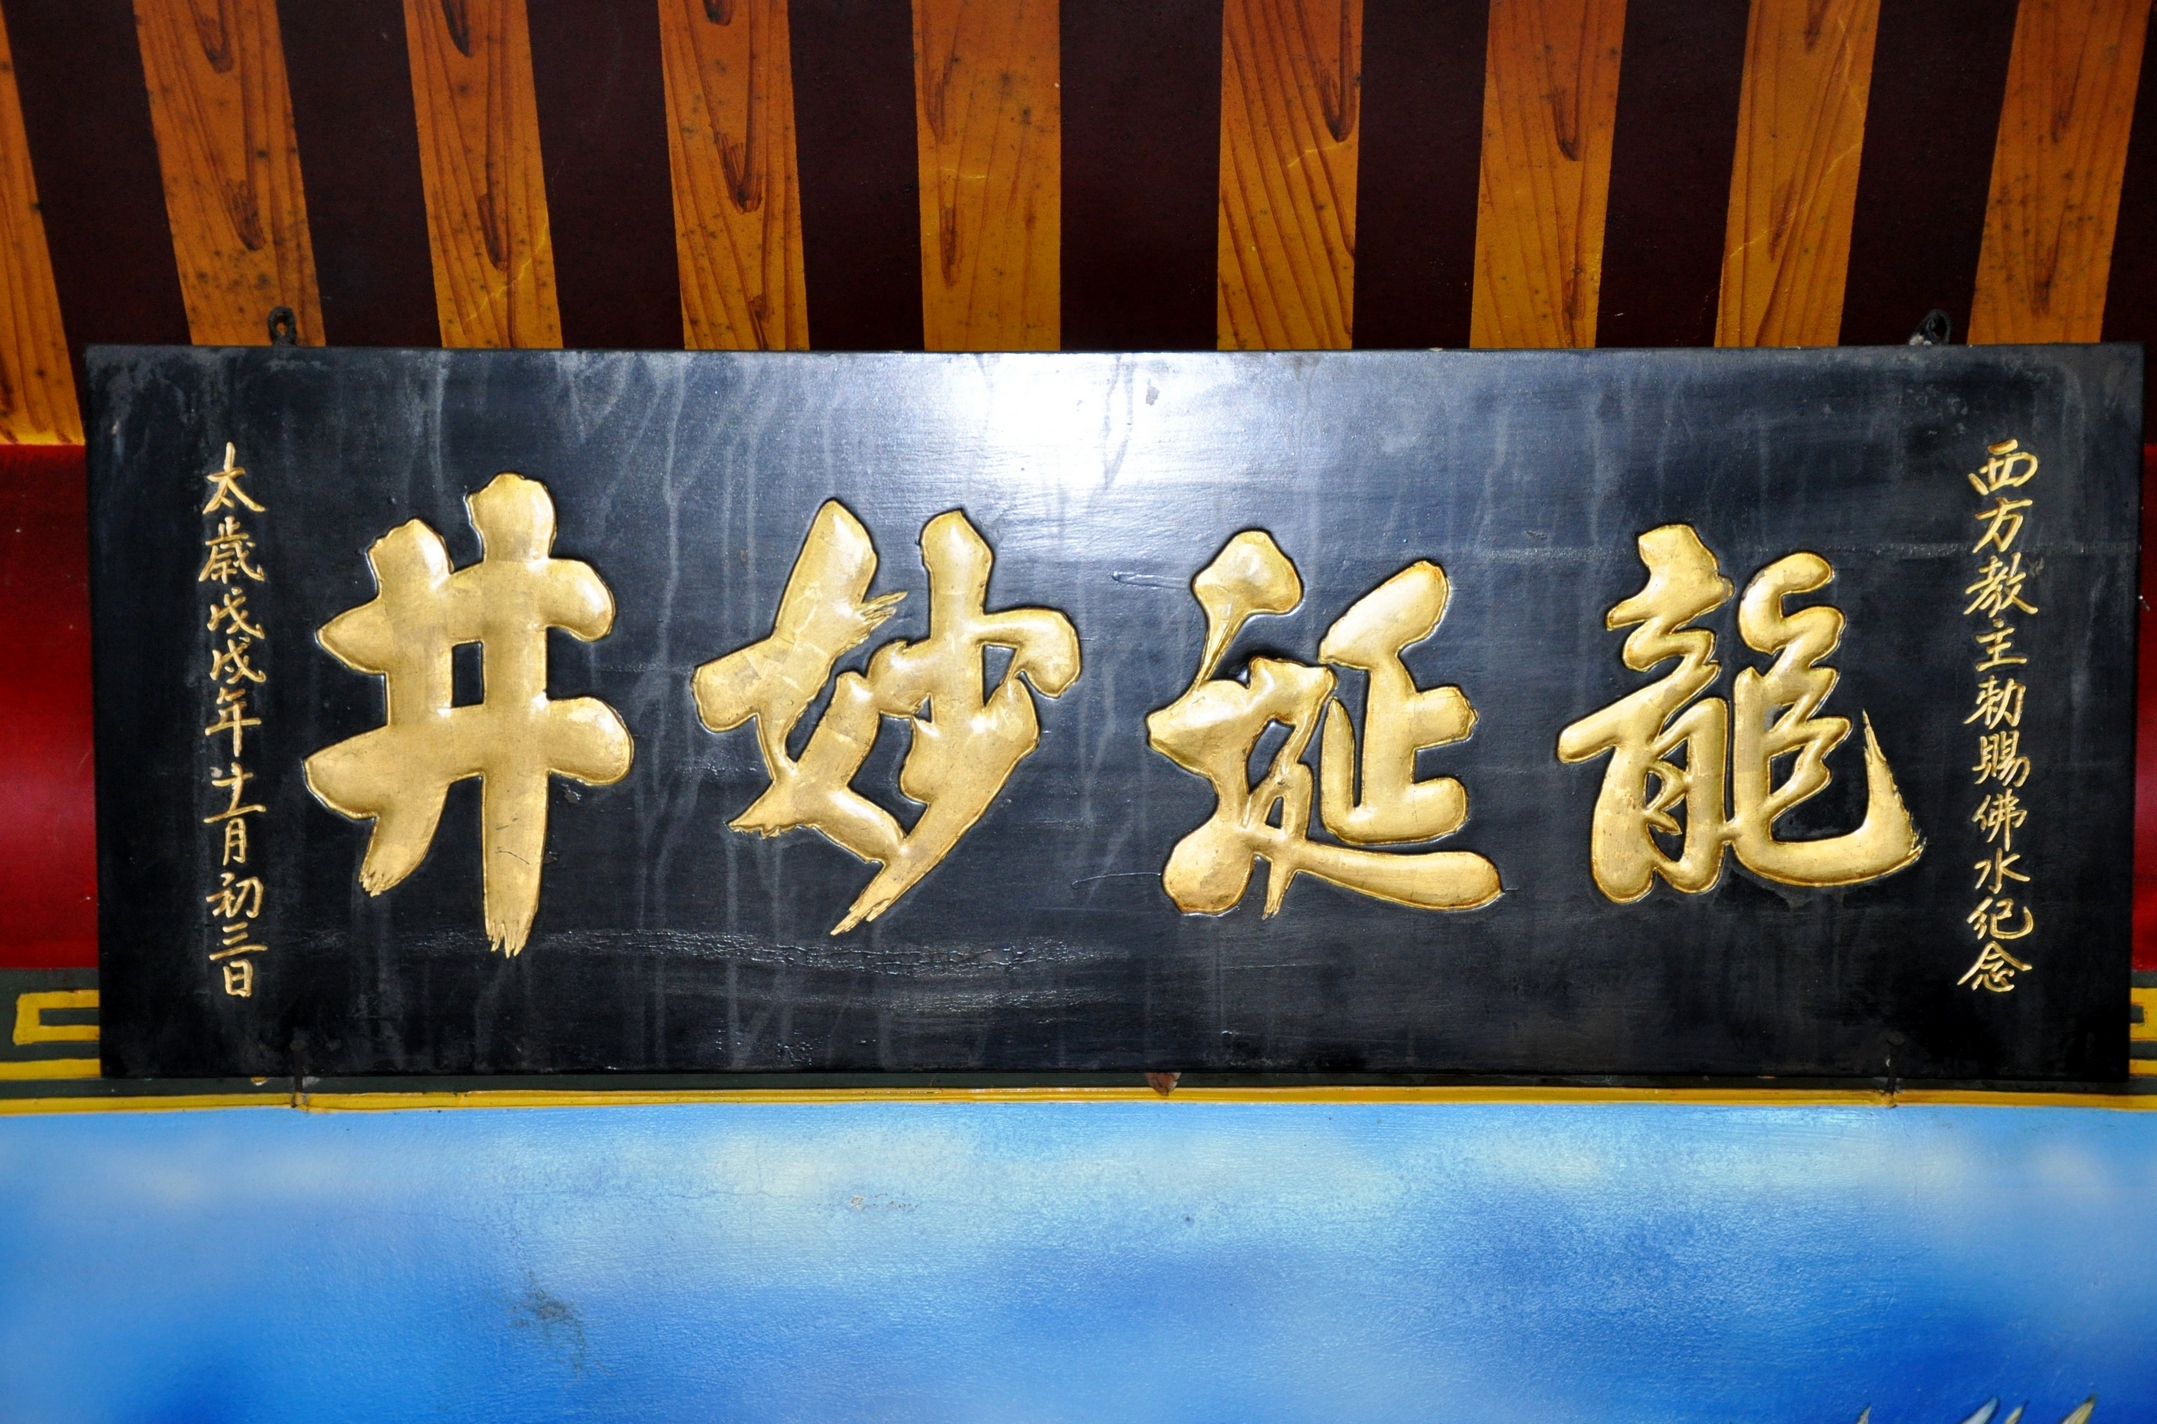 西方教主勅賜佛水紀念
龍延妙井
太歲戊戌年十一月初三日